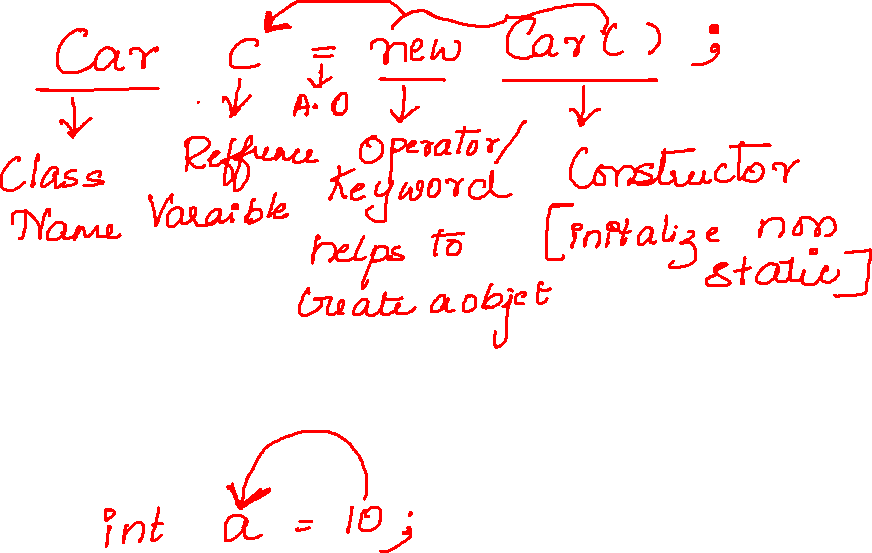 Car C = new Car();
A.O
Class Name
Reffrence Varaible
Operator/ Keyword
helps to
create a objct
Constructor
[initalize non
static]
int a = 10;